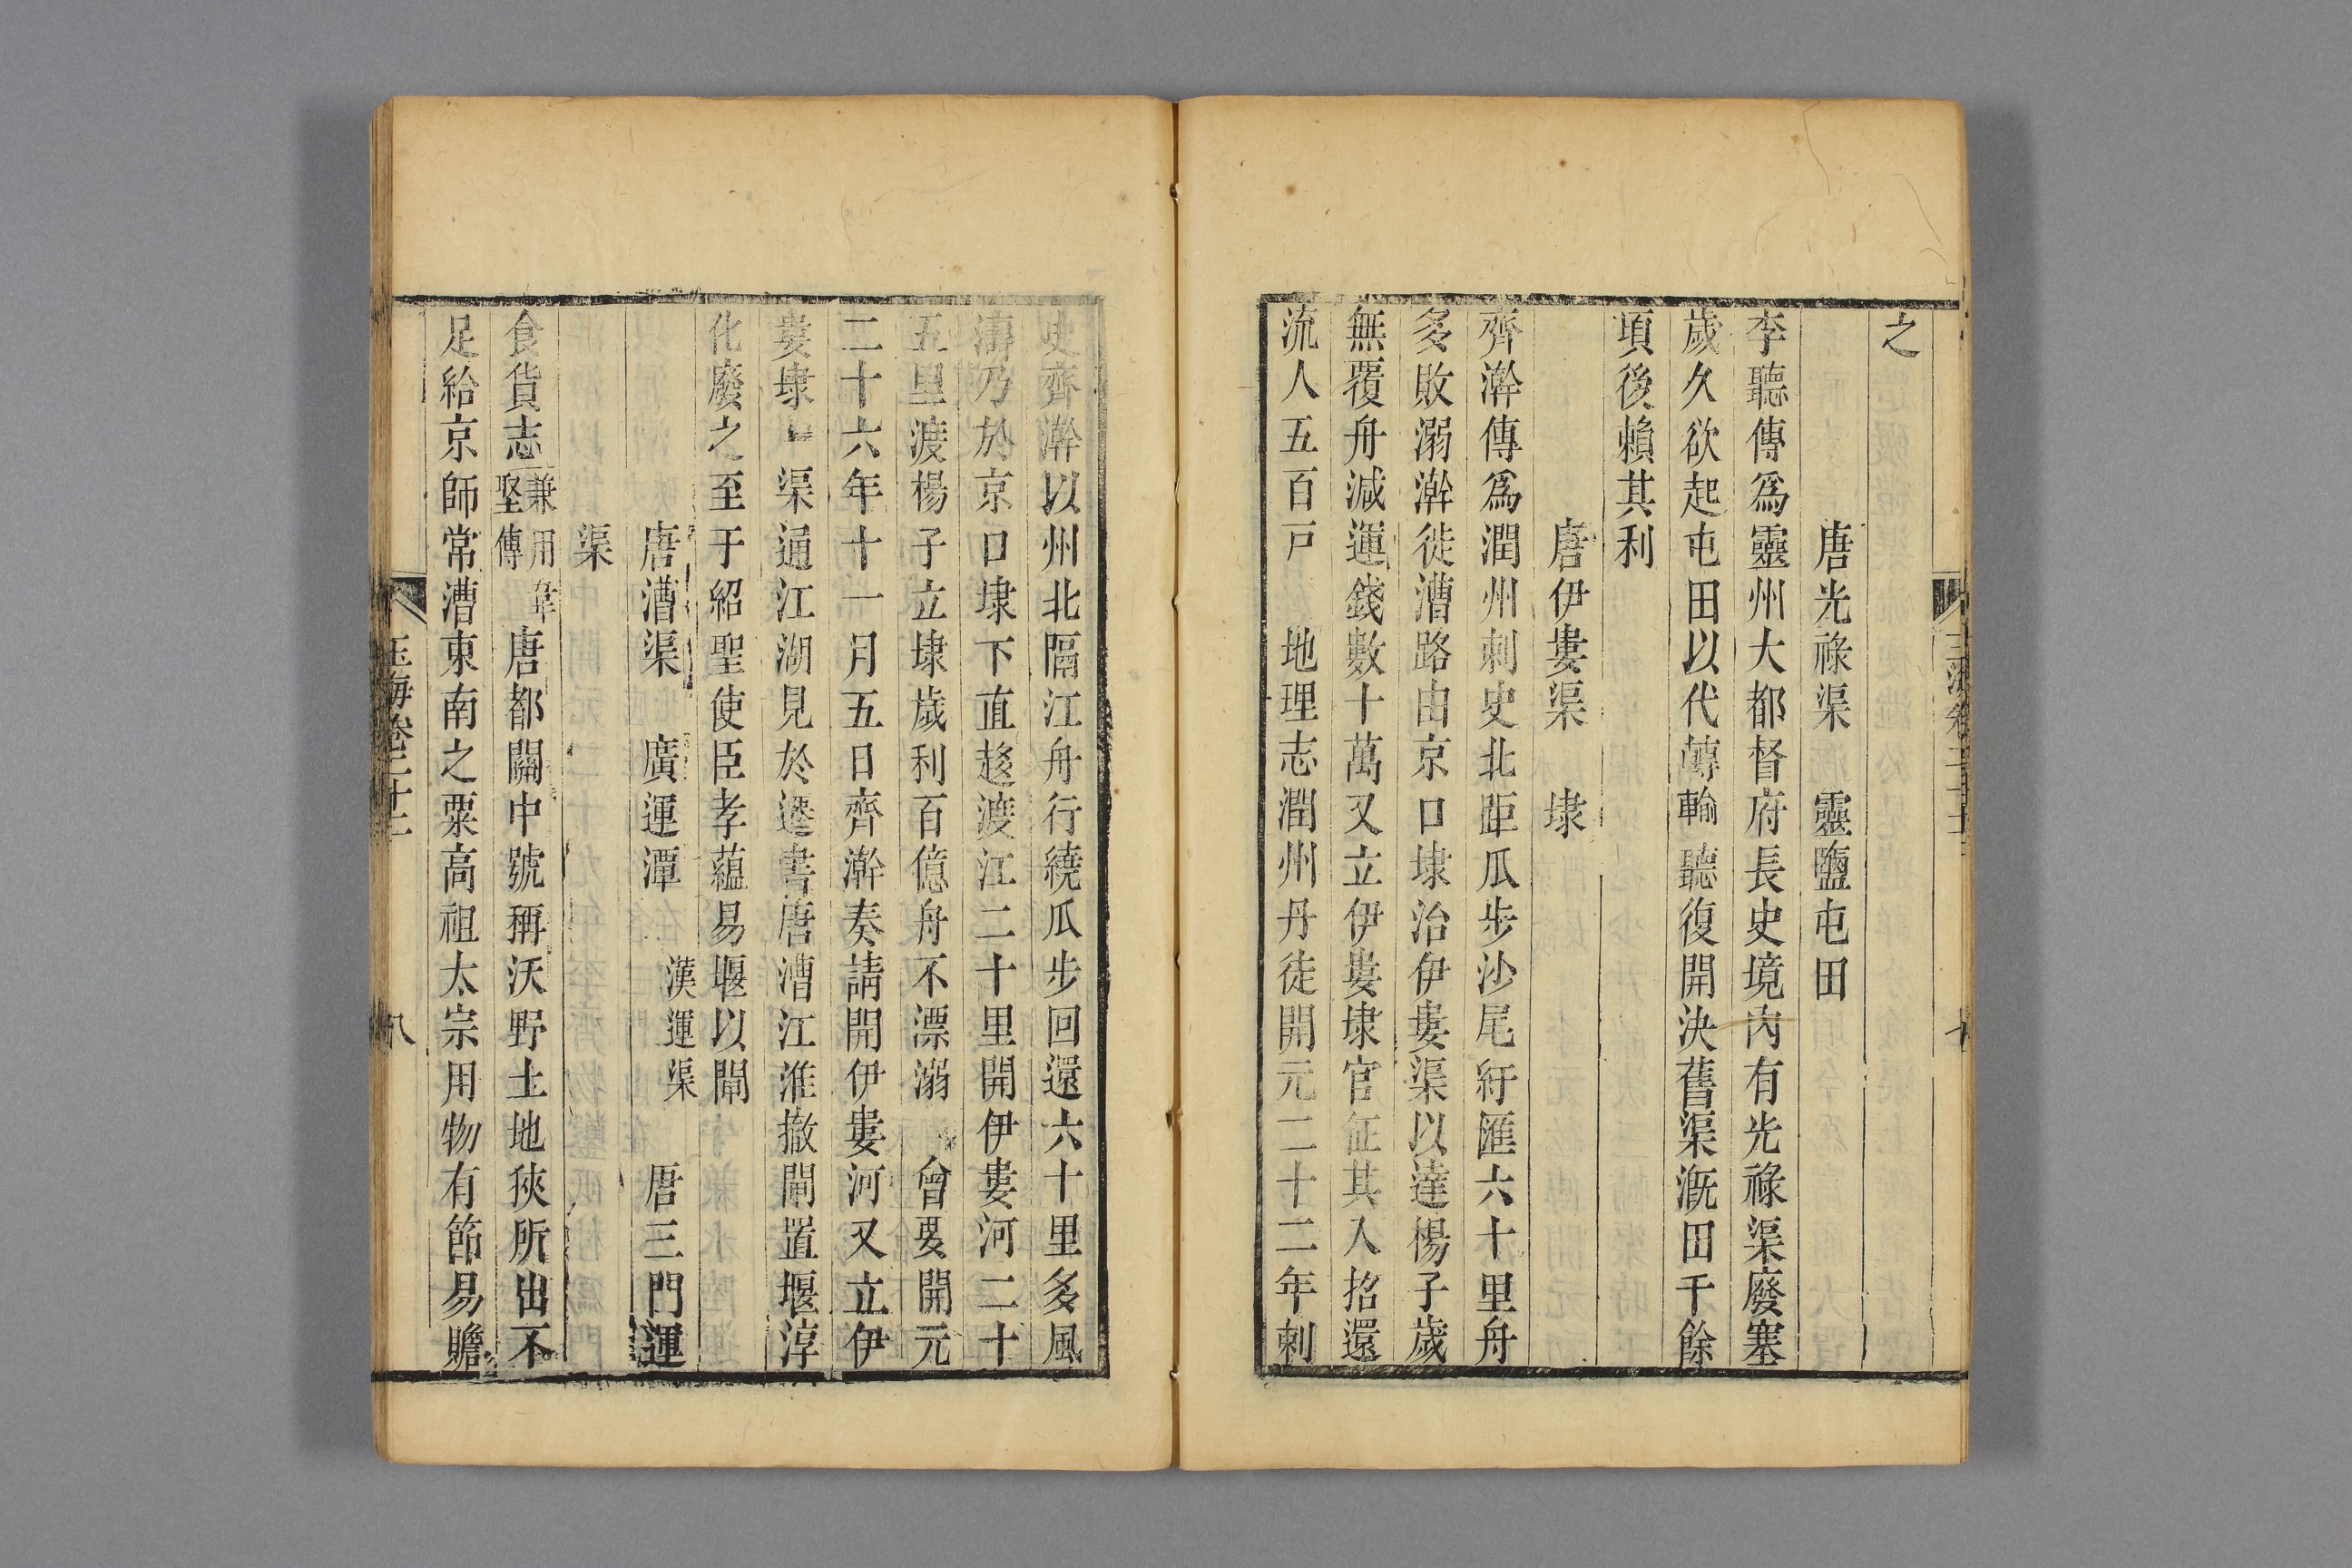 之
唐光祿渠　靈鹽屯田
李聽傳爲靈州大都督府長史境內有光祿渠廢塞
歲久欲起屯田以代轉輸聽復開決舊渠漑田千餘
項後賴其利
唐伊婁渠　埭
齊澣傳爲潤州刺史北距瓜步沙尾紆匯六十里舟
多敗溺澣徙漕路由京口埭治伊婁渠以達楊子歲
無覆舟減運錢數十萬又立伊婁埭官征其入招還
流人五百戸　地理志潤州丹徒開元二十二年刺
史齊澣以州北隔江舟行繞瓜步回還六十里多風
濤乃於京口埭下直趍渡江二十里開伊婁河二十
五里渡楊子立埭歲利百億舟不漂溺　會要開元
二十六年十一月五日齊澣奏請開伊婁河又立伊
婁埭　渠通江湖見於遷書唐漕江淮撤閘置堰淳
化廢之至于紹聖使臣孝蘊易堰以閘
唐漕渠　廣運潭　漢運渠　唐三門運
渠
食貨志兼用韋
堅傳唐都關中號稱沃野土地狹所出不
足給京師常漕東南之粟高祖太宗用物有節易贍
玉海卷二十二　八